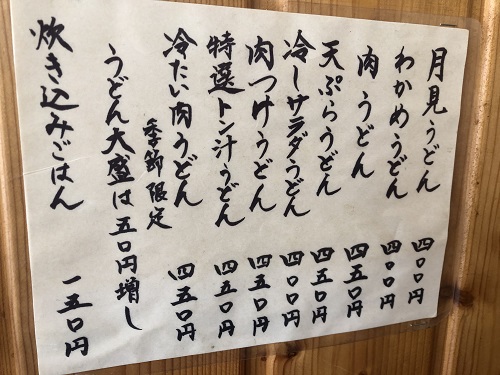 月見うどん 四〇〇円
わかめうどん 四〇〇円
肉うどん 四五〇円
天ぷらうどん 四五〇円
冷しサラダうどん 四〇〇円
肉つけうどん 四五〇円
特選トン汁うどん 四五〇円
冷たい肉うどん 四五〇円
季節限定
うどん大盛は五〇円増し
炊き込みごはん 一五〇円